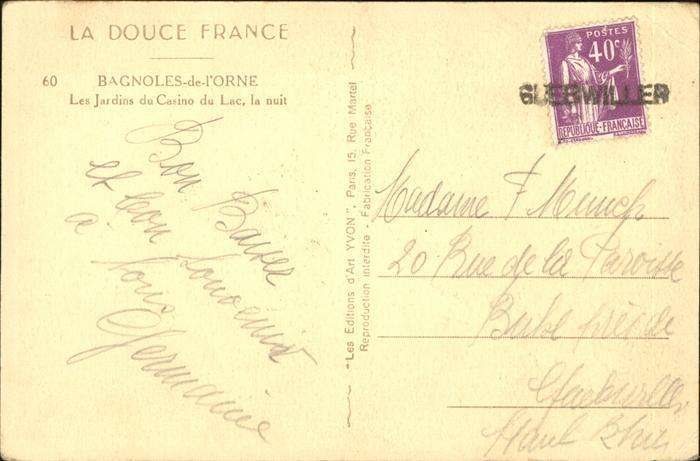 LA DOUCE FRANCE
60 BAGNOLES-de-l'ORNE
Les Jardins du Casino du Lac, la nuit
Bon Baiser
et bon souvenir
à tous
Germaine
"Les Editions d'Art YVON", Paris, 15, Rue Martel
Reproduction interdite - Fabrication Française
POSTES
40c
REPUBLIQUE FRANCAISE
GUEBWILLER
Madame F Munch
20 Rue de la Paroisse
près de
Guebwiller
Haut Rhin